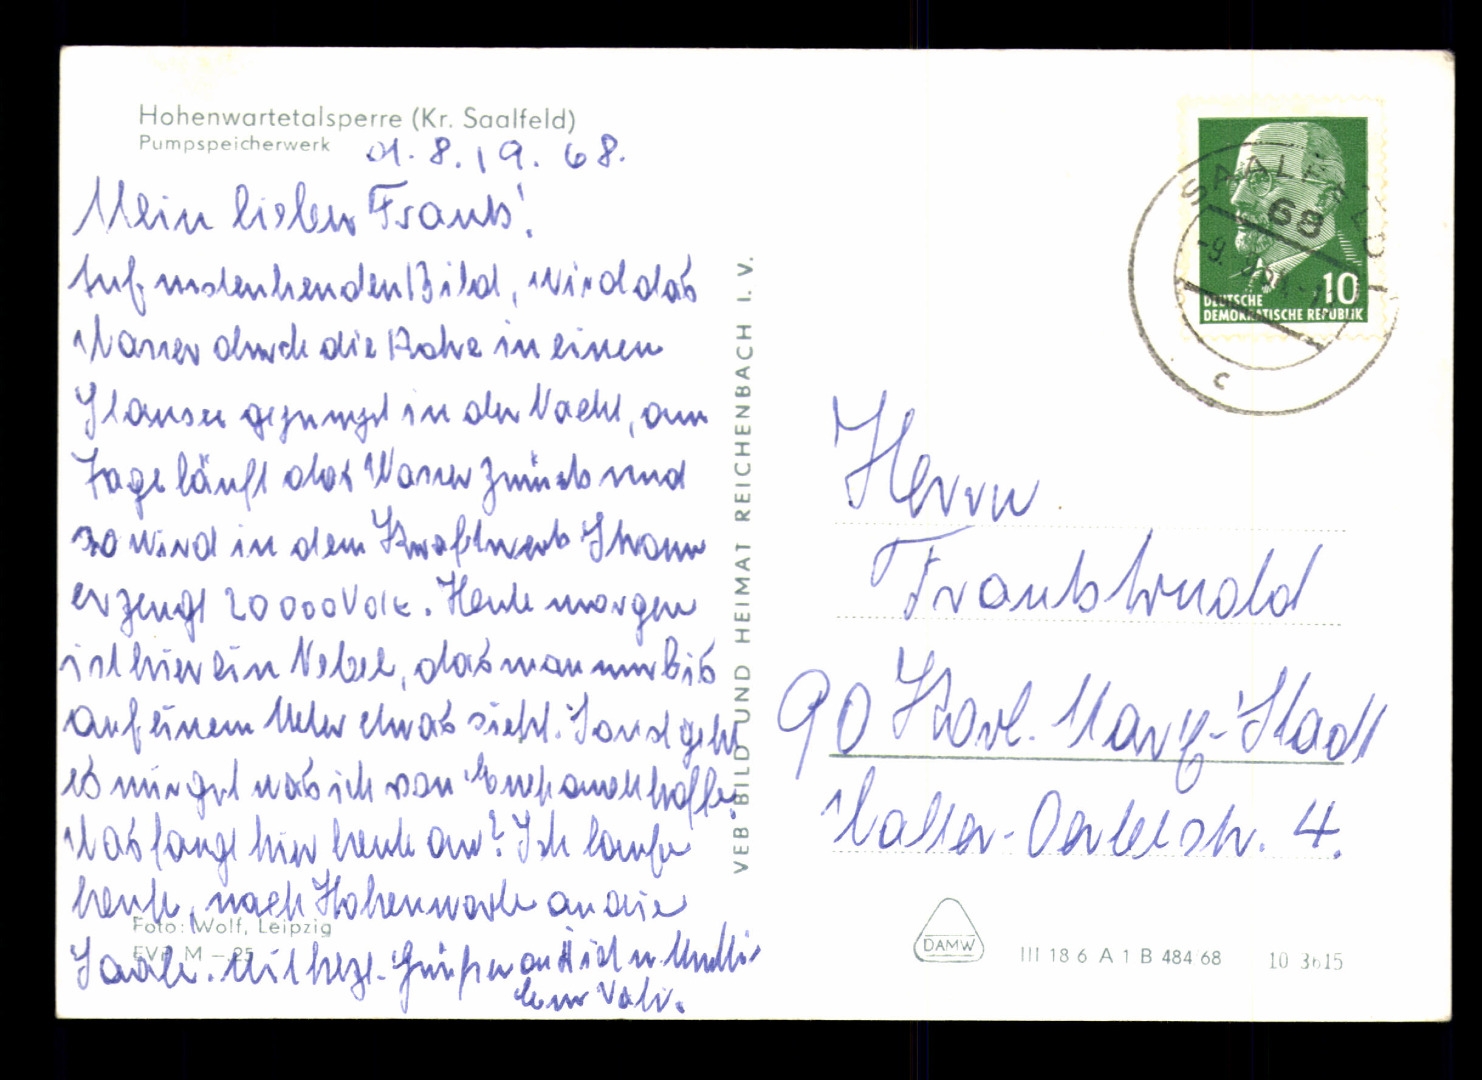 Hohenwartetalsperre (Kr. Saalfeld)
Pumpspeicherwerk
d. 8.19.68.
Mein lieber Frank!
Auf umstenhenden Bild, wird das
Wasser durch die Rohre in einen
Stausee gepumpt in der Nacht, am
Tage läuft das Wasser zurück und
so wird in dem Kraftwerk Strom
erzeugt 20000 Volt. Heute morgen
ist hier ein Nebel, das man nur bis
auf einem Meter etwas sieht. Sonst geht
es mir gut was ich von Euch auch hoffe.
Was fangt hier heute an? Ich laufe
heute, nach Hohenwarte an die
Saale. Mit herzl. Grüßen an Dich u. Mutti
Euer Vati.
Foto: Wolf, Leipzig
EVP M –.25
VEB BILD UND HEIMAT REICHENBACH I. V.
SAALFELD
68
10
DEUTSCHE
DEMOKRATISCHE REPUBLIK
c
Herrn
Frank
90 Karl-Marx-Stadt
Walter-Oertelstr. 4.
DAMW
III 18 6 A 1 B 484 68
10 3615